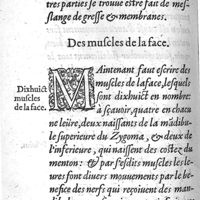 tres parties je trouve estre fait de mes-
slange de gresse & membranes.
Des muscles de la face.
Dixhuict
muscles
de la face.
MAintenant faut escrire des
muscles de la face, lesquels
sont dixhuict en nombre:
à sçavoir, quatre en chacu
ne leure, deux naissants de la mãdi-
bule superieure du Zygoma, & deux de
l'inferieure, qui naissent des costez du
menton: & par sesdits muscles les le-
ures sont divers mouuements par le be-
nefice des nerfs qui reçoiuent des man-